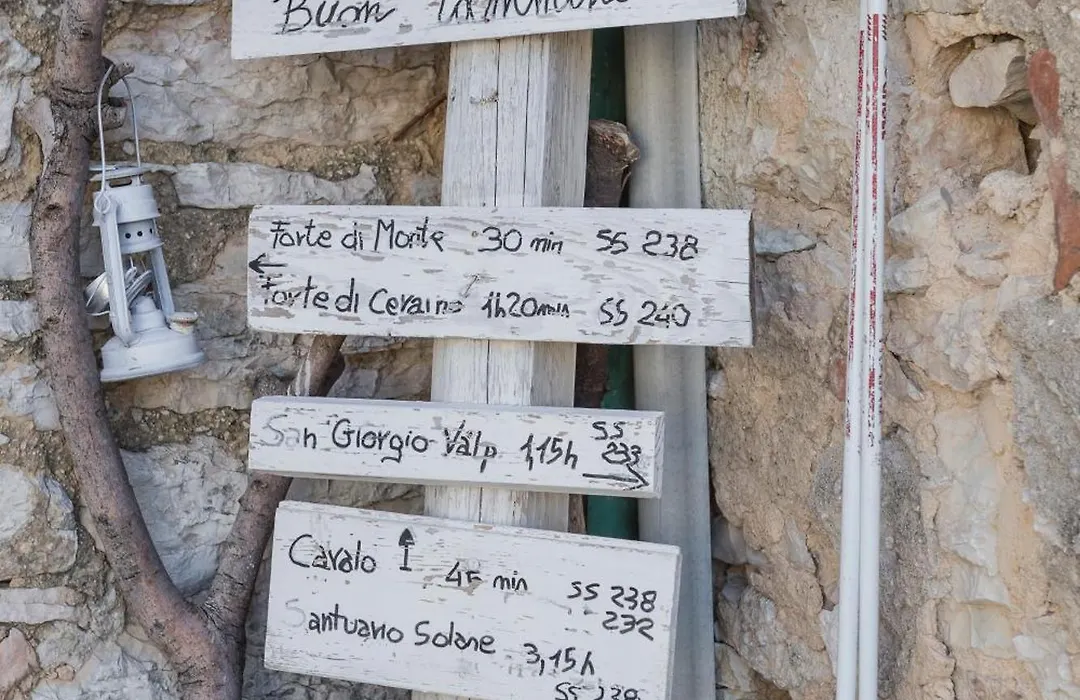 Buon
Forte di Monte 30 min SS 238
Forte di Ceraino 1h20min SS 240
San Giorgio Valp 1,15h SS
233
Cavalo 45 min SS 238
232
Santuario Solane 3,15h
SS